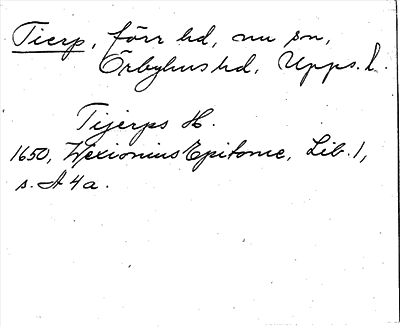 Tierp, förr hd, nu sn,
Örbyhus hd, Upps. l.
Tijerps H.
1650, Wexionius Epitome, Lib. 1,
s. A 4 a.